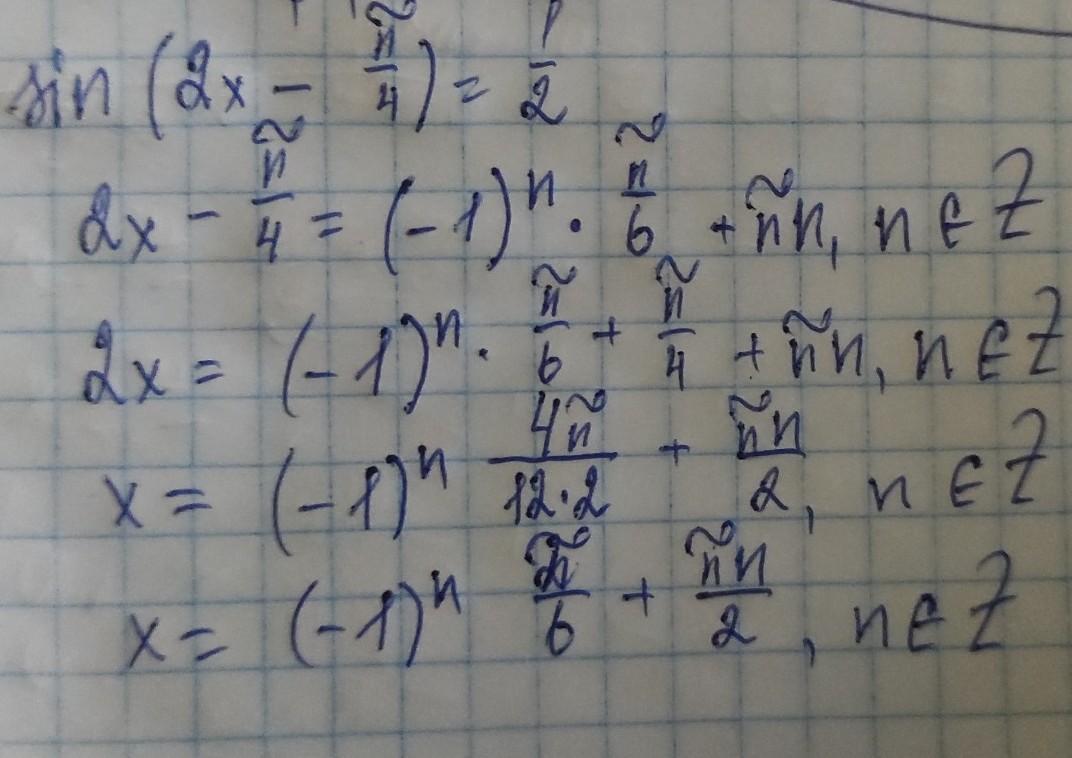 sin (2x - π/4) = 1/2
2x - π/4 = (-1)ⁿ · π/6 + πn, n ∈ Z
2x = (-1)ⁿ · π/6 + π/4 + πn, n ∈ Z
x = (-1)ⁿ 4π/12·2 + πn/2, n ∈ Z
x = (-1)ⁿ π/6 + πn/2, n ∈ Z